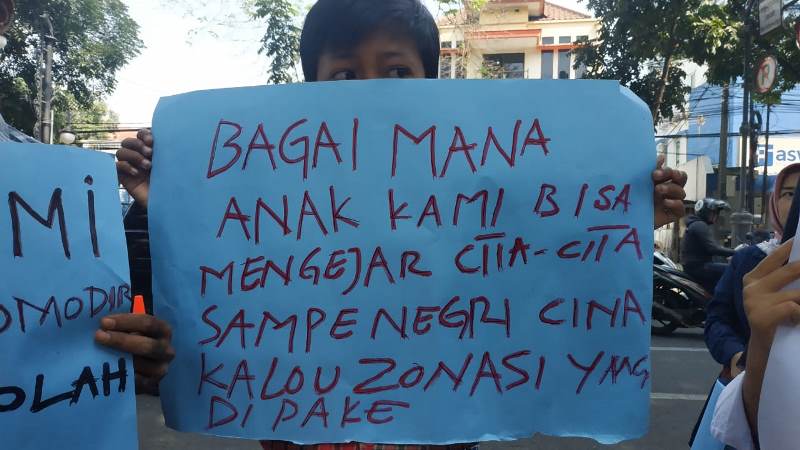 BAGAI MANA
ANAK KAMI BISA
MENGEJAR CITA-CITA
SAMPE NEGRI CINA
KALOU ZONASI YANG
DI PAKE
MI
OMODIR
OLAH
asw